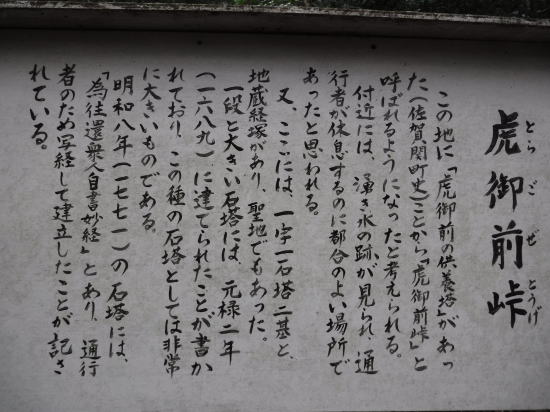 虎御前峠
とらごぜとうげ
この地に「虎御前の供養塔」があっ
た(佐賀関町史)ことから「虎御前峠」と
呼ばれるようになったと考えられる。
付近には、湧き水の跡が見られ、通
行者が休息するのに都合のよい場所で
あったと思われる。
又、ここには、一字一石塔二基と、
地蔵経塚があり、聖地でもあった。
一段と大きい石塔には、元禄二年
(一六八九)に建てられたことが書か
れており、この種の石塔としては非常
に大きいものである。
明和八年(一七七一)の石塔には、
「為往還衆人自書妙経」とあり、通行
者のため写経して建立したことが記さ
れている。